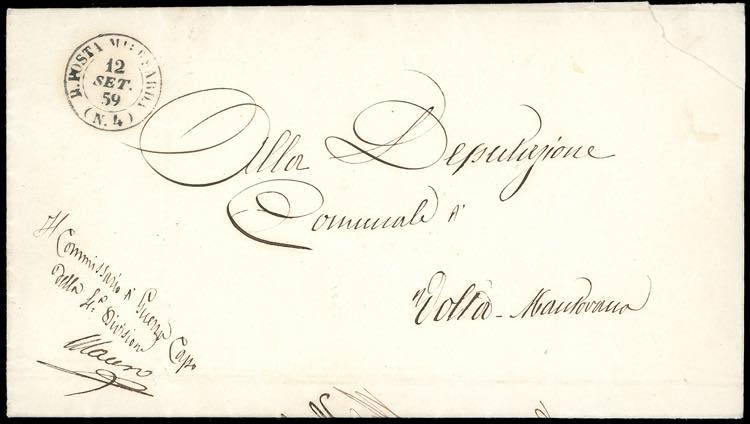 R. POSTA MILRE SARDA
12
SET.
59
(N. 4)
Alla Deputazione
Comunale di
Volta-Mantovana
Il Commissario di Guerra Capo
della 4a Divisione